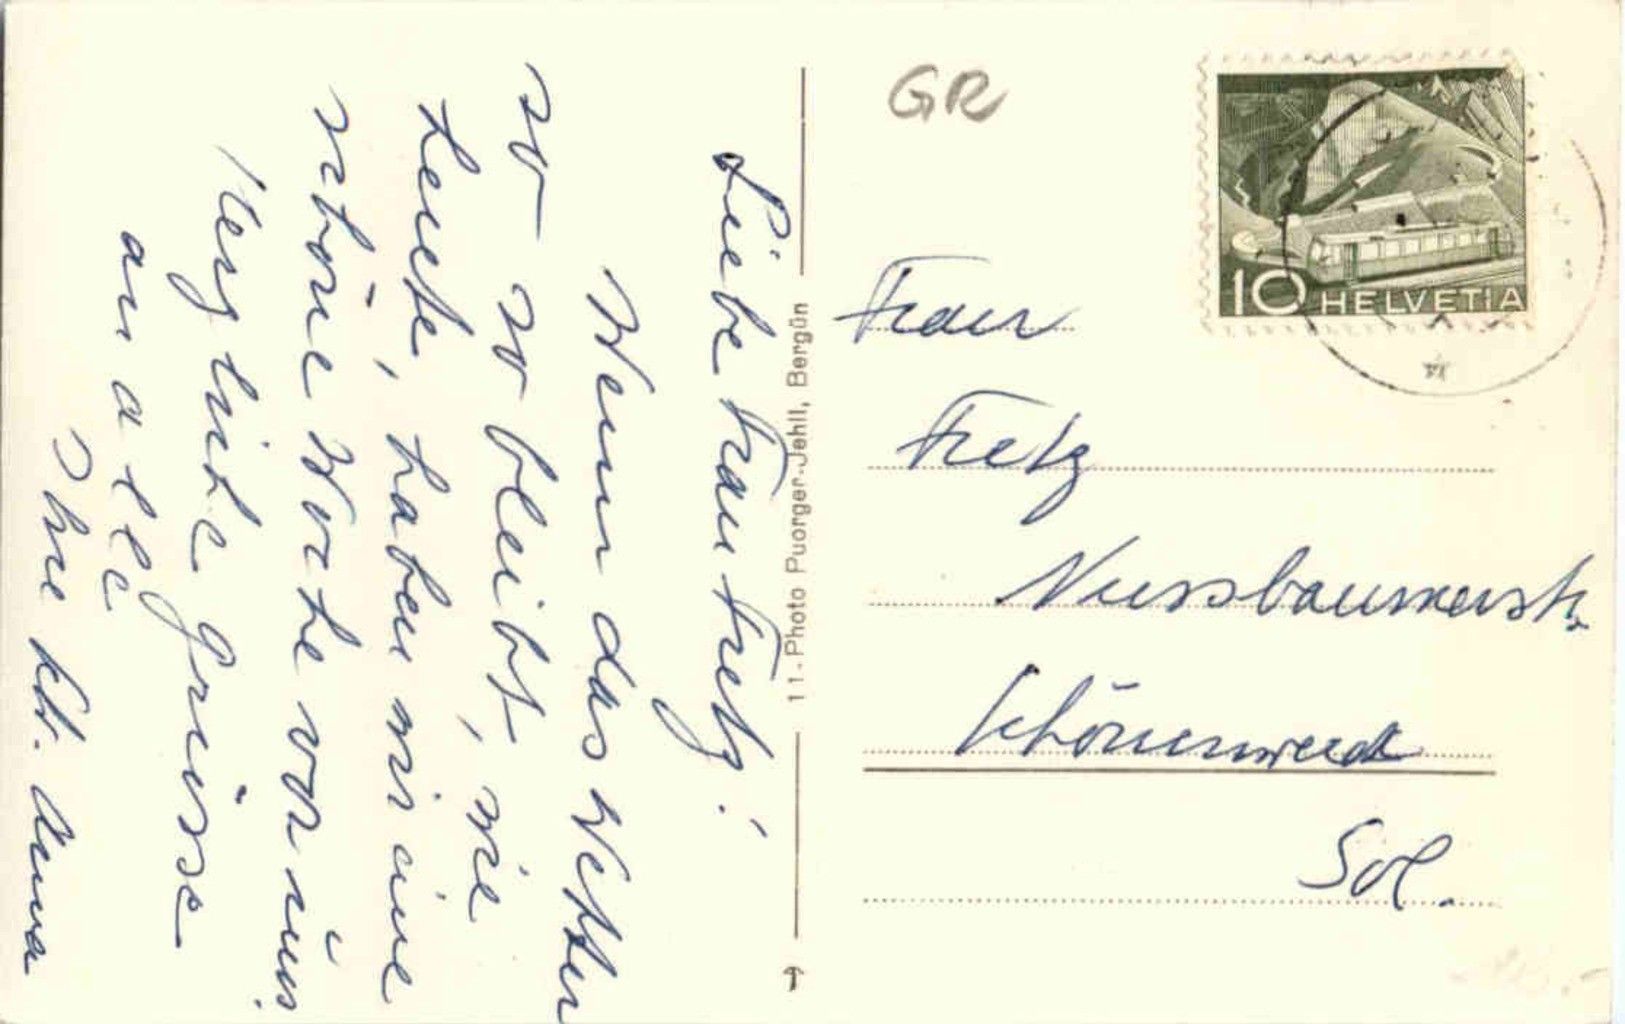 Liebe Frau Fretz!
Wenn das Wetter
so so bleibt, wie
heute, haben wir eine
schöne Woche vor uns.
Herzliche Grüsse
an alle
Ihre
11 - Photo Puorger-Jehli, Bergün
GR
10 HELVETIA
Frau
Fretz
Nussbaumerstr.
Schönenwerd
Sol.